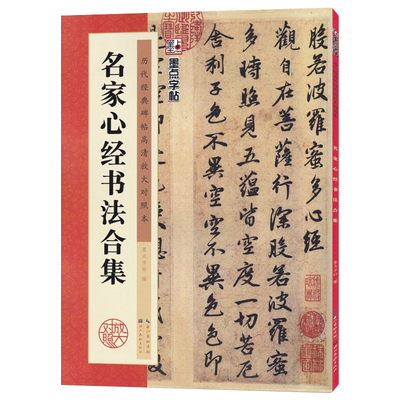 墨点字帖
历代经典碑帖高清放大对照本
名家心经书法合集
墨点字帖 编
放大
对照
般若波罗蜜多心经
觀自在菩薩行深般若波羅蜜
多時照見五蘊皆空度一切苦厄
舍利子色不異空空不異色色即
名家心经书法合集